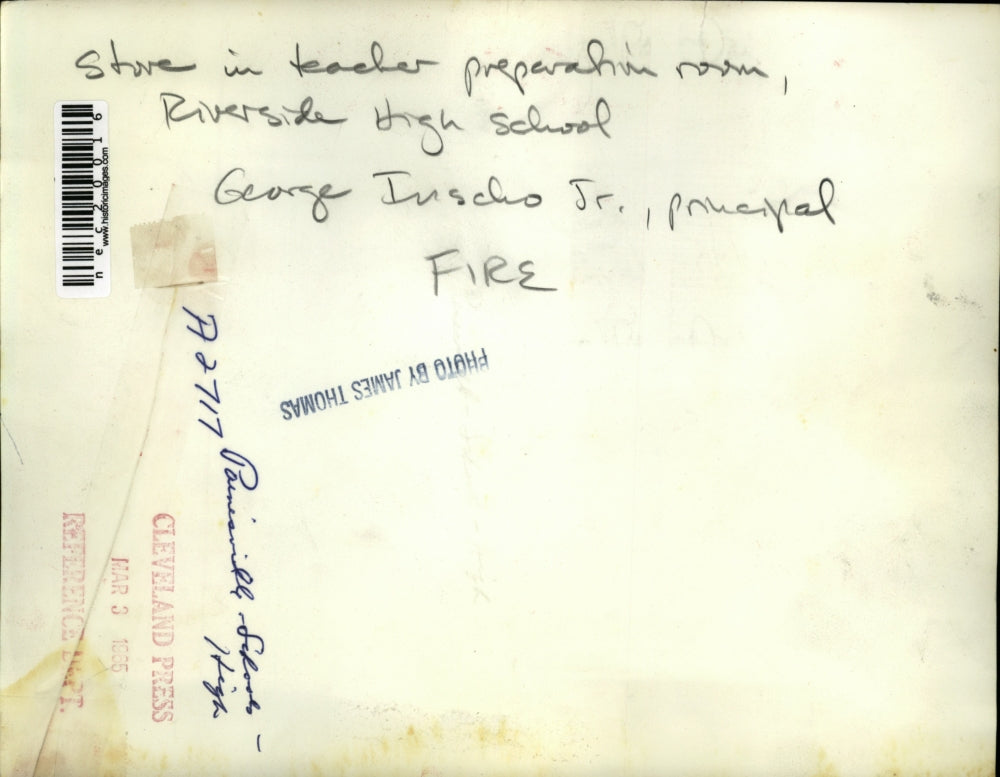 Stove in teacher preparation room,
Riverside High School
George Inscho Jr., principal
FIRE
nec20016
www.historicimages.com
A2717 Painesville - Schools -
High
PHOTO BY JAMES THOMAS
CLEVELAND PRESS
MAR 3
REFERENCE DEPT.